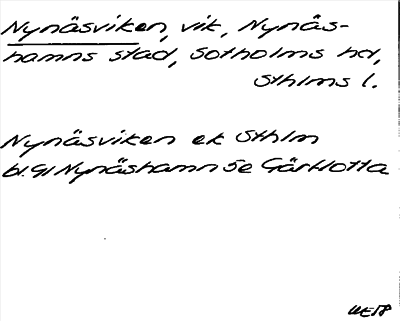 Nynäsviken, vik, Nynäs-
hamns stad, Sotholms hd,
Sthlms l.
Nynäsviken ek Sthlm
bl. 91 Nynäshamn SE